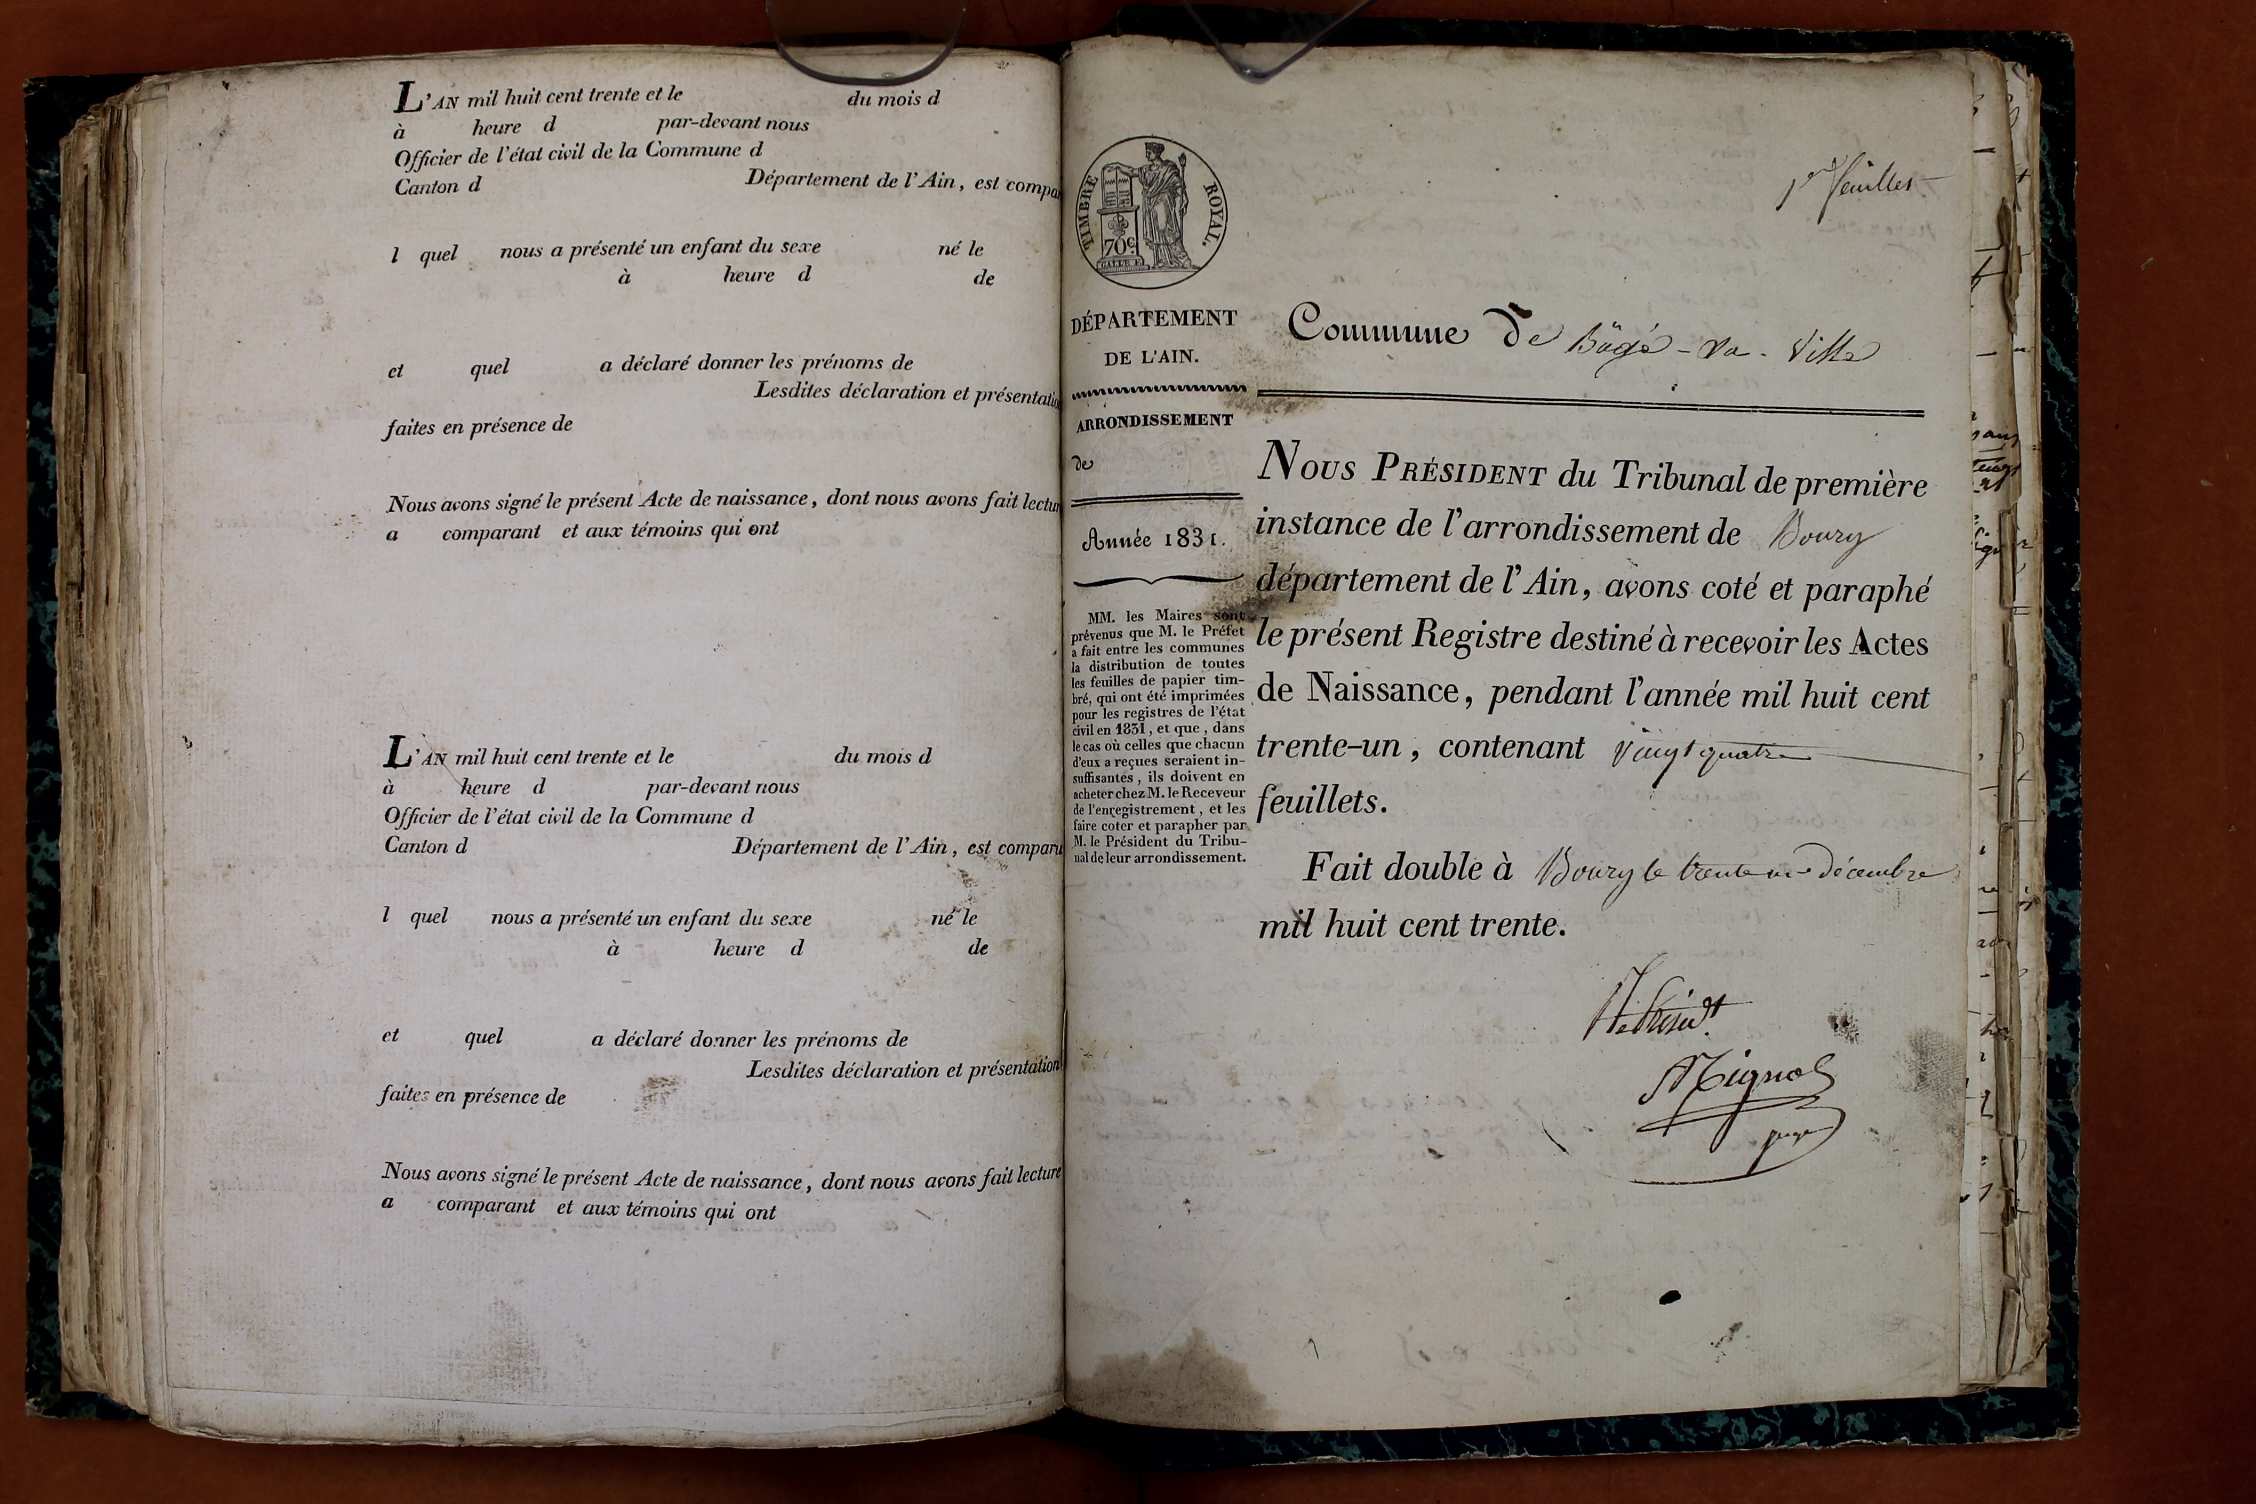 L'AN mil huit cent trente et le du mois d
à heure d par-devant nous
Officier de l'état civil de la Commune d
Canton d Département de l'Ain, est compar
l quel nous a présenté un enfant du sexe né le
à heure d de
et quel a déclaré donner les prénoms de
Lesdites déclaration et présentation
faites en présence de
Nous avons signé le présent Acte de naissance, dont nous avons fait lectur
a comparant et aux témoins qui ont
L'AN mil huit cent trente et le du mois d
à heure d par-devant nous
Officier de l'état civil de la Commune d
Canton d Département de l'Ain, est comparu
l quel nous a présenté un enfant du sexe né le
à heure d de
et quel a déclaré donner les prénoms de
Lesdites déclaration et présentation
faites en présence de
Nous avons signé le présent Acte de naissance, dont nous avons fait lecture
a comparant et aux témoins qui ont
1er feuillet
TIMBRE ROYAL.
70c
DÉPARTEMENT
DE L'AIN.
ARRONDISSEMENT
de
Année 1831.
MM. les Maires sont
prévenus que M. le Préfet
a fait entre les communes
la distribution de toutes
les feuilles de papier tim-
bré, qui ont été imprimées
pour les registres de l'état
civil en 1831, et que, dans
le cas où celles que chacun
d'eux a reçues seraient in-
suffisantes, ils doivent en
acheter chez M. le Receveur
de l'enregistrement, et les
faire coter et parapher par
M. le Président du Tribu-
nal de leur arrondissement.
Commune de Bâgé-la-Ville
NOUS PRÉSIDENT du Tribunal de première
instance de l'arrondissement de Bourg
département de l'Ain, avons coté et paraphé
le présent Registre destiné à recevoir les Actes
de Naissance, pendant l'année mil huit cent
trente-un, contenant vingt quatre
feuillets.
Fait double à Bourg le trente un décembre
mil huit cent trente.
juge